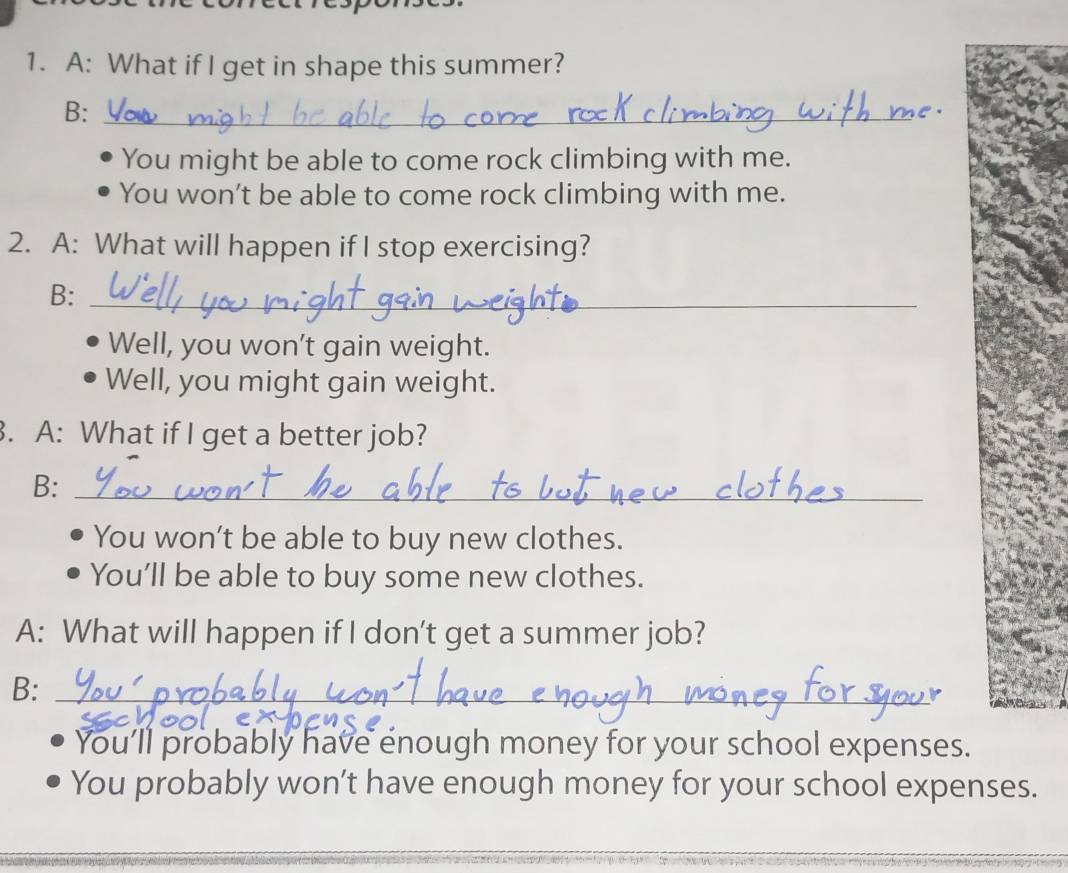 1. A: What if I get in shape this summer?
B: You might be able to come rock climbing with me.
• You might be able to come rock climbing with me.
• You won't be able to come rock climbing with me.
2. A: What will happen if I stop exercising?
B: Well, you might gain weight.
• Well, you won't gain weight.
• Well, you might gain weight.
3. A: What if I get a better job?
B: You won't be able to but new clothes
• You won't be able to buy new clothes.
• You'll be able to buy some new clothes.
A: What will happen if I don't get a summer job?
B: You' probably won't have enough money for your
school expense.
• You'll probably have enough money for your school expenses.
• You probably won't have enough money for your school expenses.